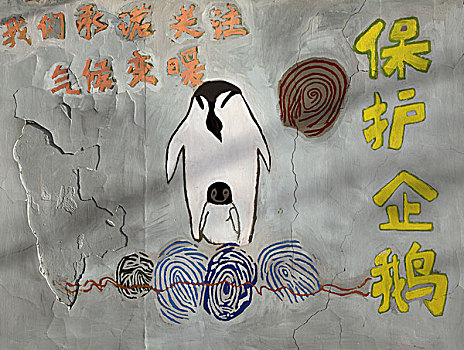 我们承诺关注
气候变暖
保护企鹅